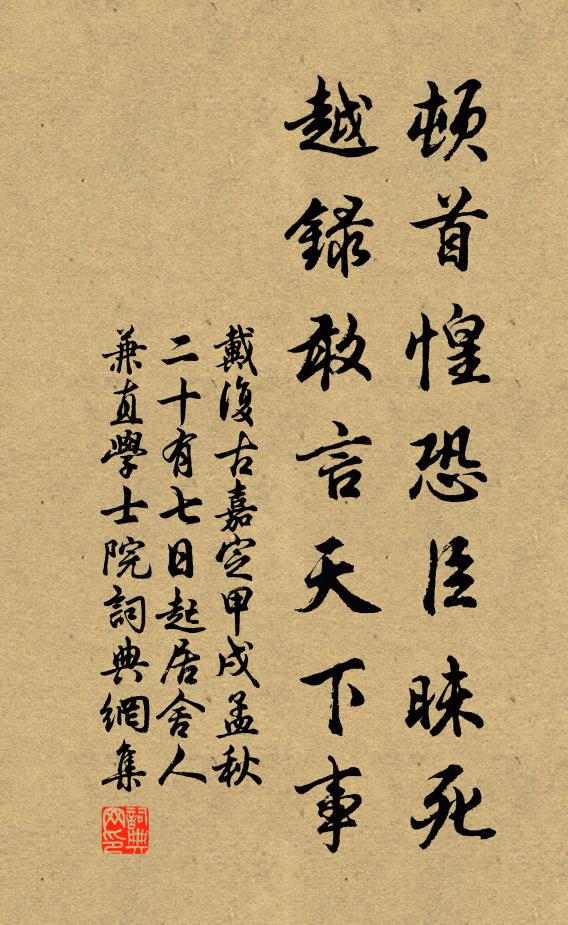 頓首惶恐臣昧死
越錄敢言天下事
戴復古嘉定甲戌孟秋
二十有七日起居舍人
兼直學士院詞典網集
詞典
网印